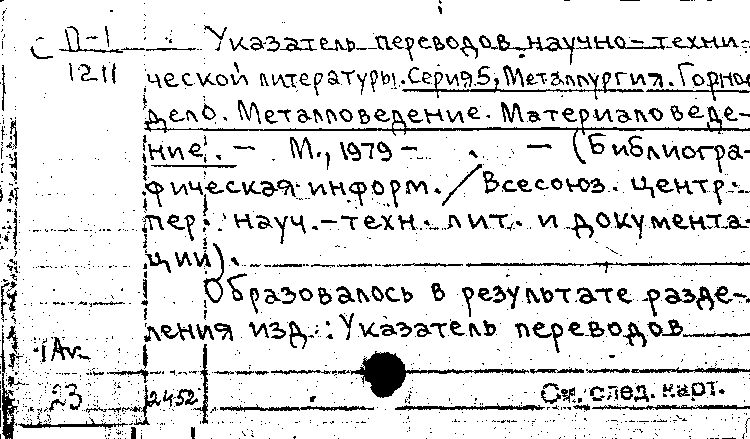 С П-1 Указатель переводов научно-техни-
1211 ческой литературы. Серия 5, Металлургия. Горное
дело. Металловедение. Материаловеде-
ние. — М., 1979 — . — (Библиогра-
фическая информ. / Всесоюз. центр.
пер. науч.-техн. лит. и документа-
ции).
Образовалось в результате разде-
ления изд.: Указатель переводов
23 2452 См. след. карт.